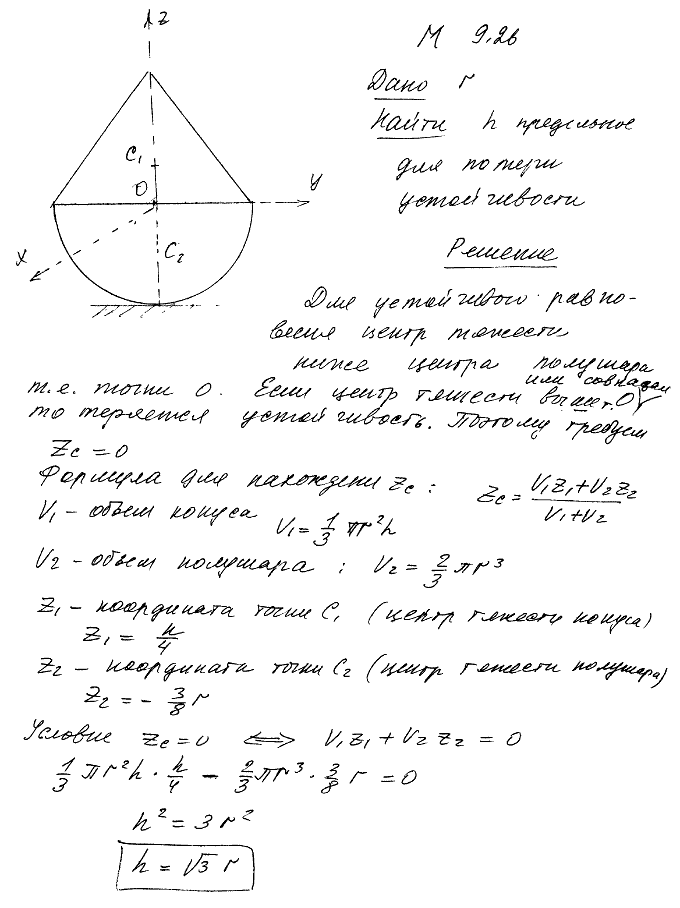 z
М 9.26
Дано r
Найти h предельное
для потери
устойчивости
C₁
O
y
C₂
x
Решение
Для устойчивого равно-
весия центр тяжести
ниже центра полушара
или совпадал
т.е. точки O. Если центр тяжести выше т. O
то теряется устойчивость. Поэтому требуем
Zc = 0
Формула для нахождени Zc : Zc = (V₁Z₁+V₂Z₂)/(V₁+V₂)
V₁ – объем конуса V₁ = 1/3 πr²h
V₂ – объем полушара ; V₂ = 2/3 πr³
Z₁ – координата точки C₁ (центр тяжести конуса)
Z₁ = h/4
Z₂ – координата точки C₂ (центр тяжести полушара)
Z₂ = – 3/8 r
Условие Zc = 0 ⟺ V₁Z₁ + V₂Z₂ = 0
1/3 πr²h · h/4 – 2/3 πr³ · 3/8 r = 0
h² = 3r²
h = √3 r